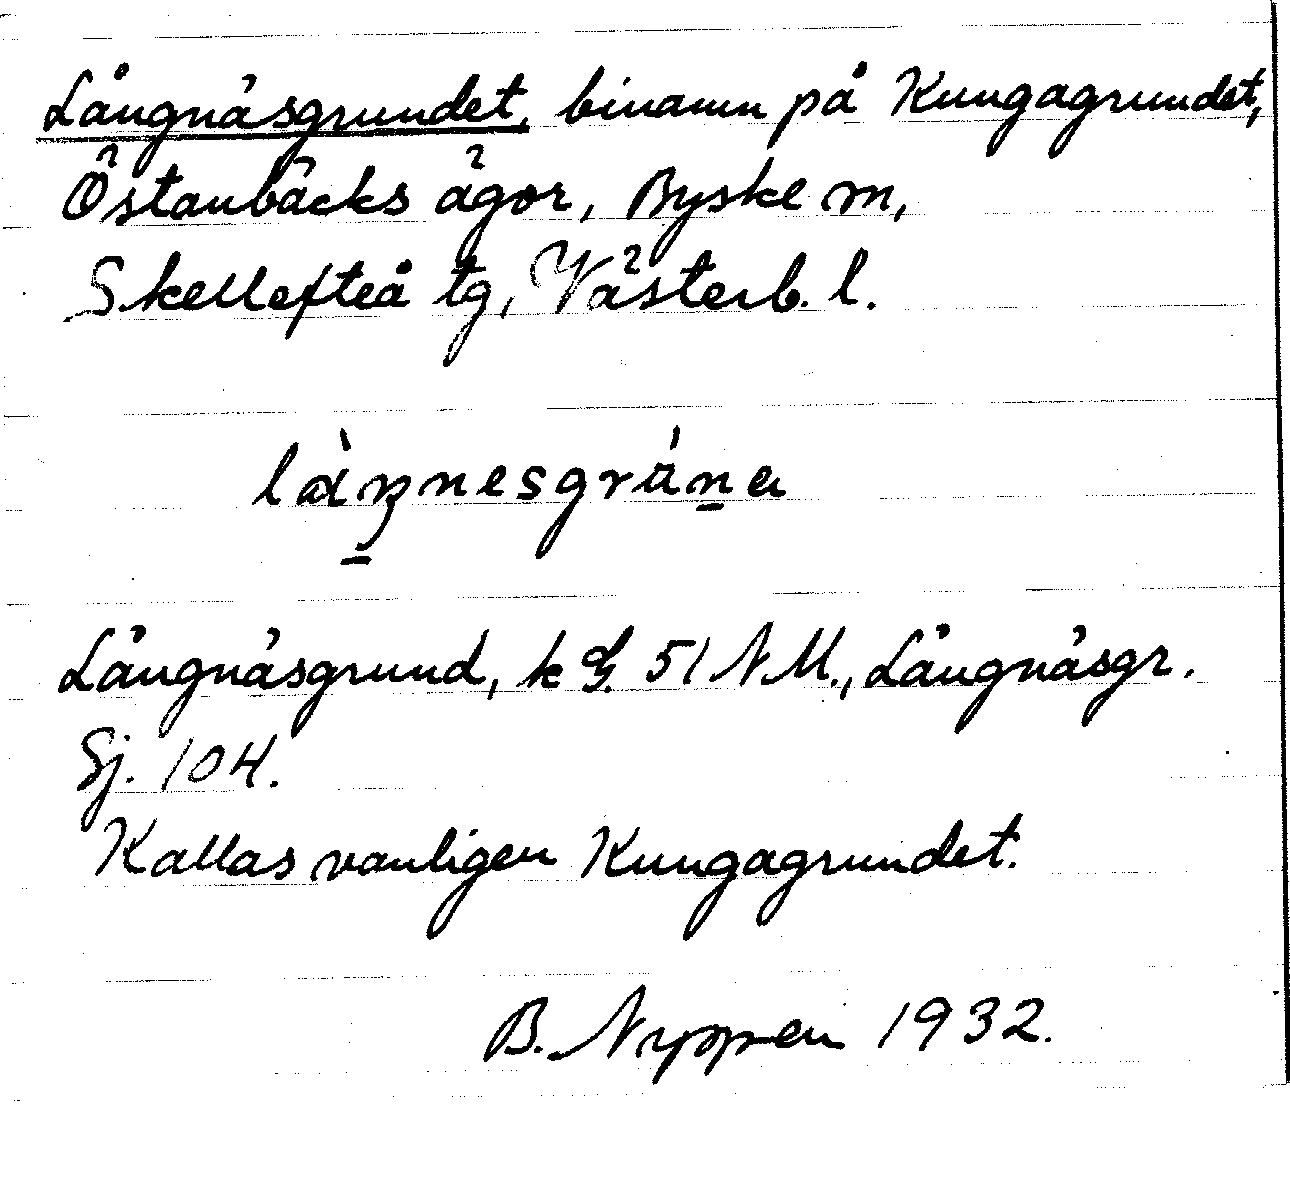 Långnäsgrundet, binamn på Kungagrundet,
Östanbäcks ägor, Byske m,
Skellefteå tg, Västerb. l.
Långnäsgrund, k G. 51 NM., Långnäsgr.
Sj. 104.
Kallas vanligen Kungagrundet.
B. Nyppen 1932.